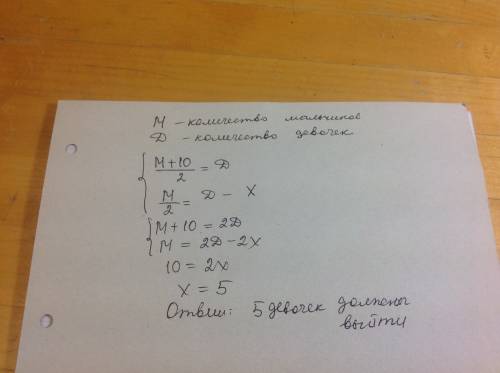 М – количество мальчиков
Д – количество девочек
{ М+10/2 = Д
М/2 = Д – х
{ М+10 = 2Д
М = 2Д – 2х
10 = 2х
х = 5
Ответ: 5 девочек должны
выйти